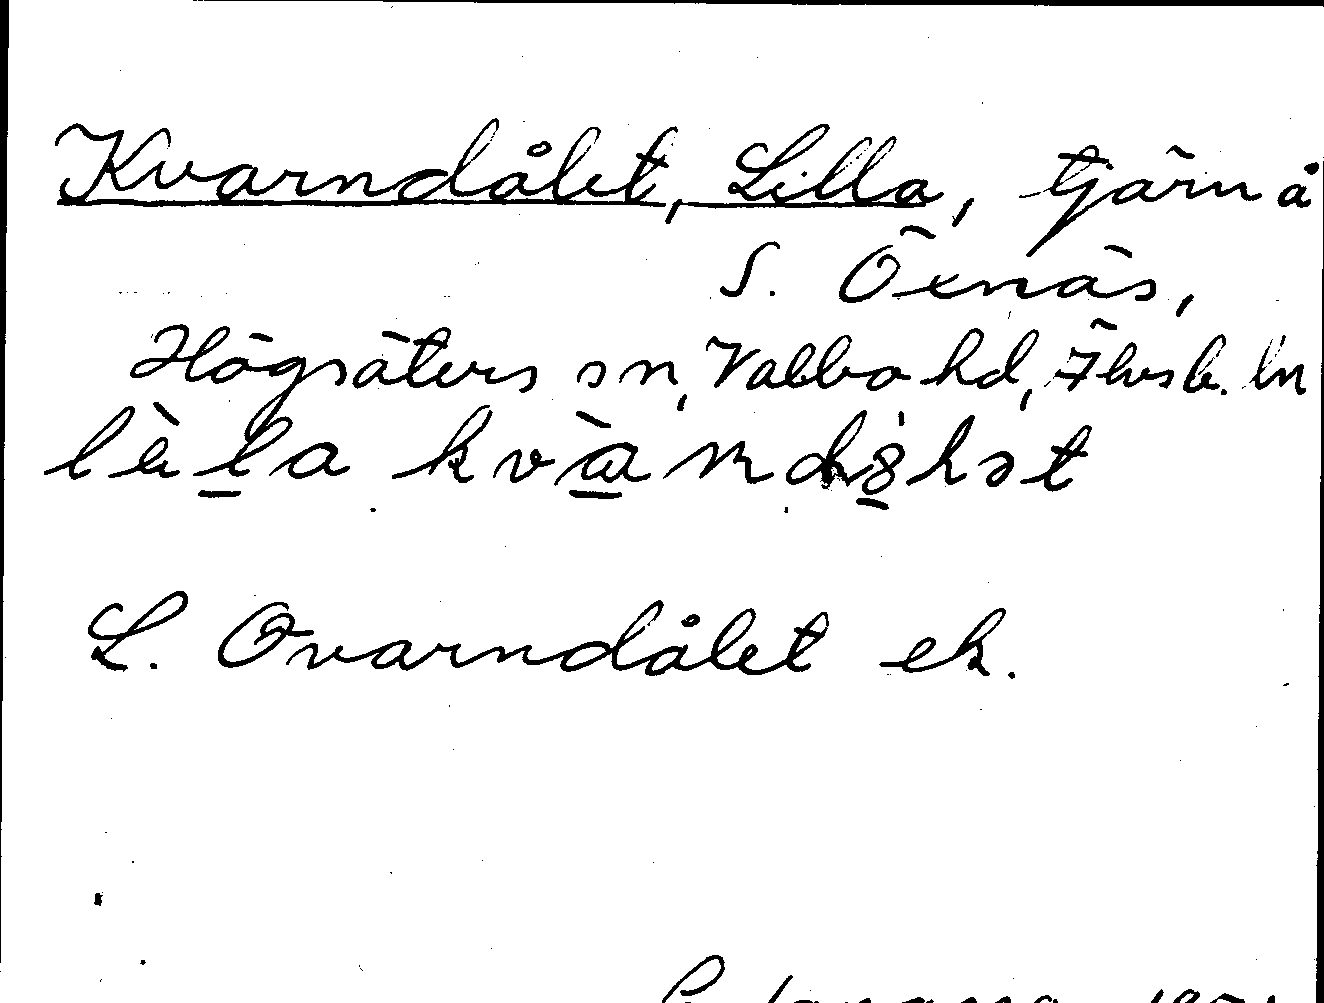 Kvarndålet, Lilla, tjärn å
S. Öxnäs,
Högsäters sn, Valbo hd, Älvsb. ln
L. Qvarndålet ek.